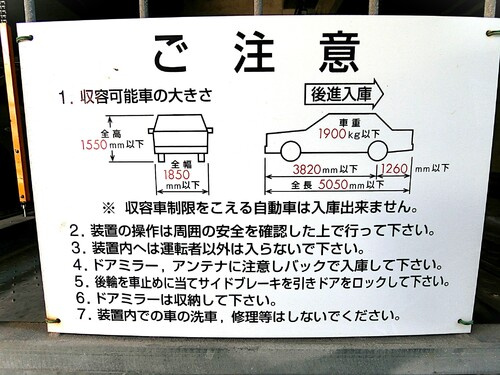 ご注意
1. 収容可能車の大きさ
後進入庫
全高
1550mm以下
全幅
1850
mm以下
車重
1900kg以下
3820mm以下
1260mm以下
全長 5050mm以下
※ 収容車制限をこえる自動車は入庫出来ません。
2. 装置の操作は周囲の安全を確認した上で行って下さい。
3. 装置内へは運転者以外は入らないで下さい。
4. ドアミラー，アンテナに注意しバックで入庫して下さい。
5. 後輪を車止めに当てサイドブレーキを引きドアをロックして下さい。
6. ドアミラーは収納して下さい。
7. 装置内での車の洗車，修理等はしないでください。